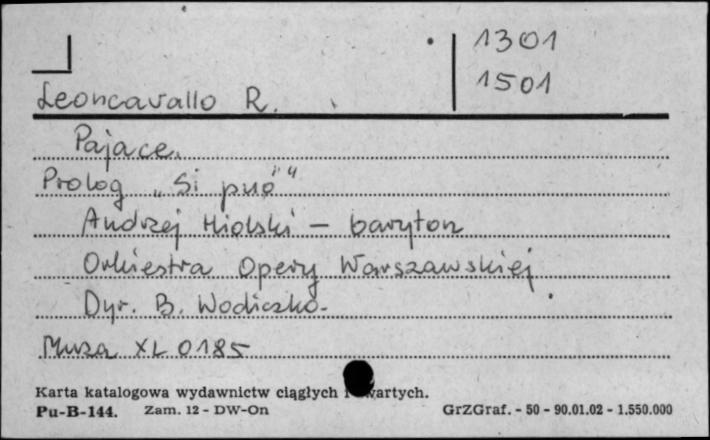 1301
1501
Leoncavallo R.
Pajace.
Prolog „Si puó"
Andrzej Hiolski – baryton
Orkiestra Opery Warszawskiej
Dyr. B. Wodiczko.
Muza XL 0185
Karta katalogowa wydawnictw ciągłych i zwartych.
Pu-B-144. Zam. 12 - DW-On GrZGraf. - 50 - 90.01.02 - 1.550.000